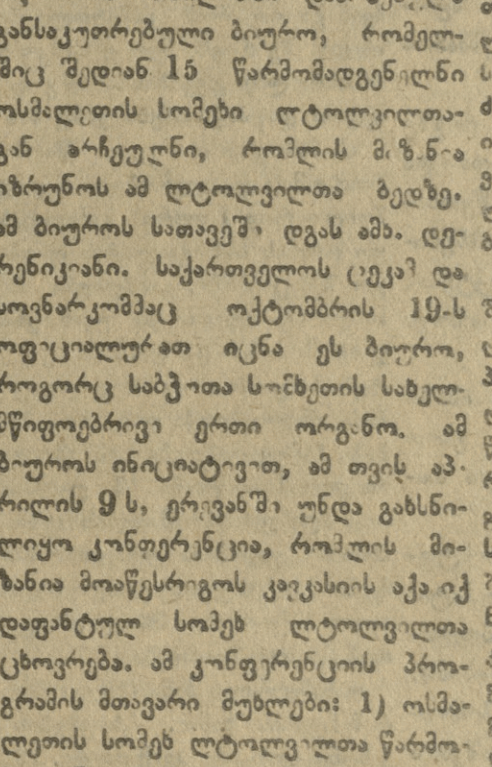 განსაკუთრებული ბიურო, რომელ-
შიც შედიან 15 წარმომადგენელნი
ოსმალეთის სომეხი ლტოლვილთა-
გან არჩეულნი, რომლის მიზანია
იზრუნოს ამ ლტოლვილთა ბედზე.
ამ ბიუროს სათავეში დგას ამხ. დე-
რენიკიანი. საქართველოს ცეკამ და
სოვნარკომმაც ოქტომბრის 19-ს
ოფიციალურათ იცნა ეს ბიურო,
როგორც საბჭოთა სომხეთის სახელ-
მწიფოებრივი ერთი ორგანო. ამ
ბიუროს ინიციატივით, ამ თვის აპ-
რილის 9 ს, ერევანში უნდა გახსნი-
ლიყო კონფერენცია, რომლის მი-
ზანია მოაწესრიგოს კავკასიის აქა იქ
დაფანტულ სომეხ ლტოლვილთა
ცხოვრება. ამ კონფერენციის პრო-
გრამის მთავარი მუხლები: 1) ოსმა-
ლეთის სომეხ ლტოლვილთა წარმო-